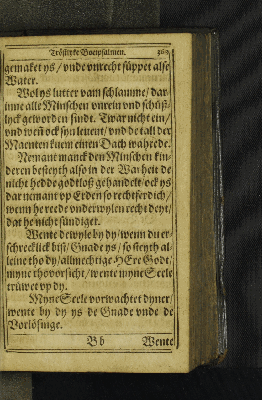 Tröstrike Boetpsalmen.
gemaket ys / vnde vnrecht süppet alse
Water.
Wol ys lutter vam schlamme / dar
inne alle Minschen vnrein vnd schüß-
lyck geworden sindt. Twar nicht ein /
vnd wen ock syn leuent / vnd he all der
Maenten kuem einen Dach wahrede.
Nemant manck den Minschen kin-
deren besteyth also in der Warheit de
nicht hedde godtloß gehandelt / ock ys
dar nemant vp Erden so rechtferdich /
wenn he rede vnderwylen recht deyt /
dat he nicht sündiget.
Wente dewyle by dy / wenn du er-
schrecklick bist / Gnade ys / so steyth al-
leine tho dy / allmechtige HEre Godt /
myne thovorsicht / wente myne Seele
trüwet vp dy.
Myne Seele vorwachtet dyner /
wente by dy ys de Gnade vnde de
Vorlösinge.
B b Wente